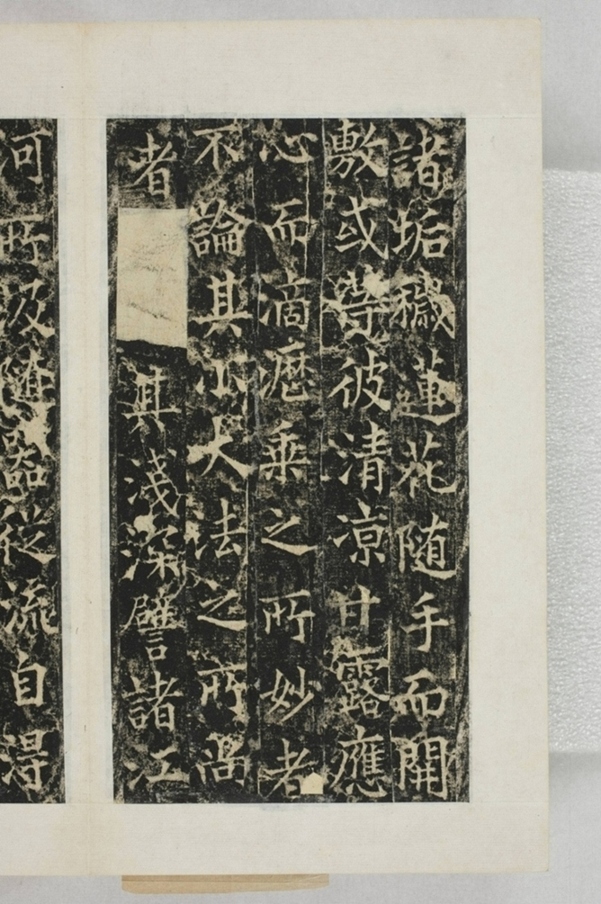 諸垢穢蓮花随手而開
敷或等彼清凉甘露應
心而滴瀝乘之所妙者
不論其小大法之所
者其淺深譬諸江
河所汲随器從流自淂